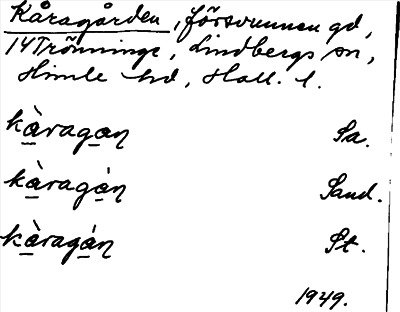 Kåragården, försvunnen gd,
14 Trönninge, Lindbergs sn,
Himle hd, Hall. l.
kàragan̥ Sa.
kàragán̥ Sand.
kàragán̥ St.
1949.